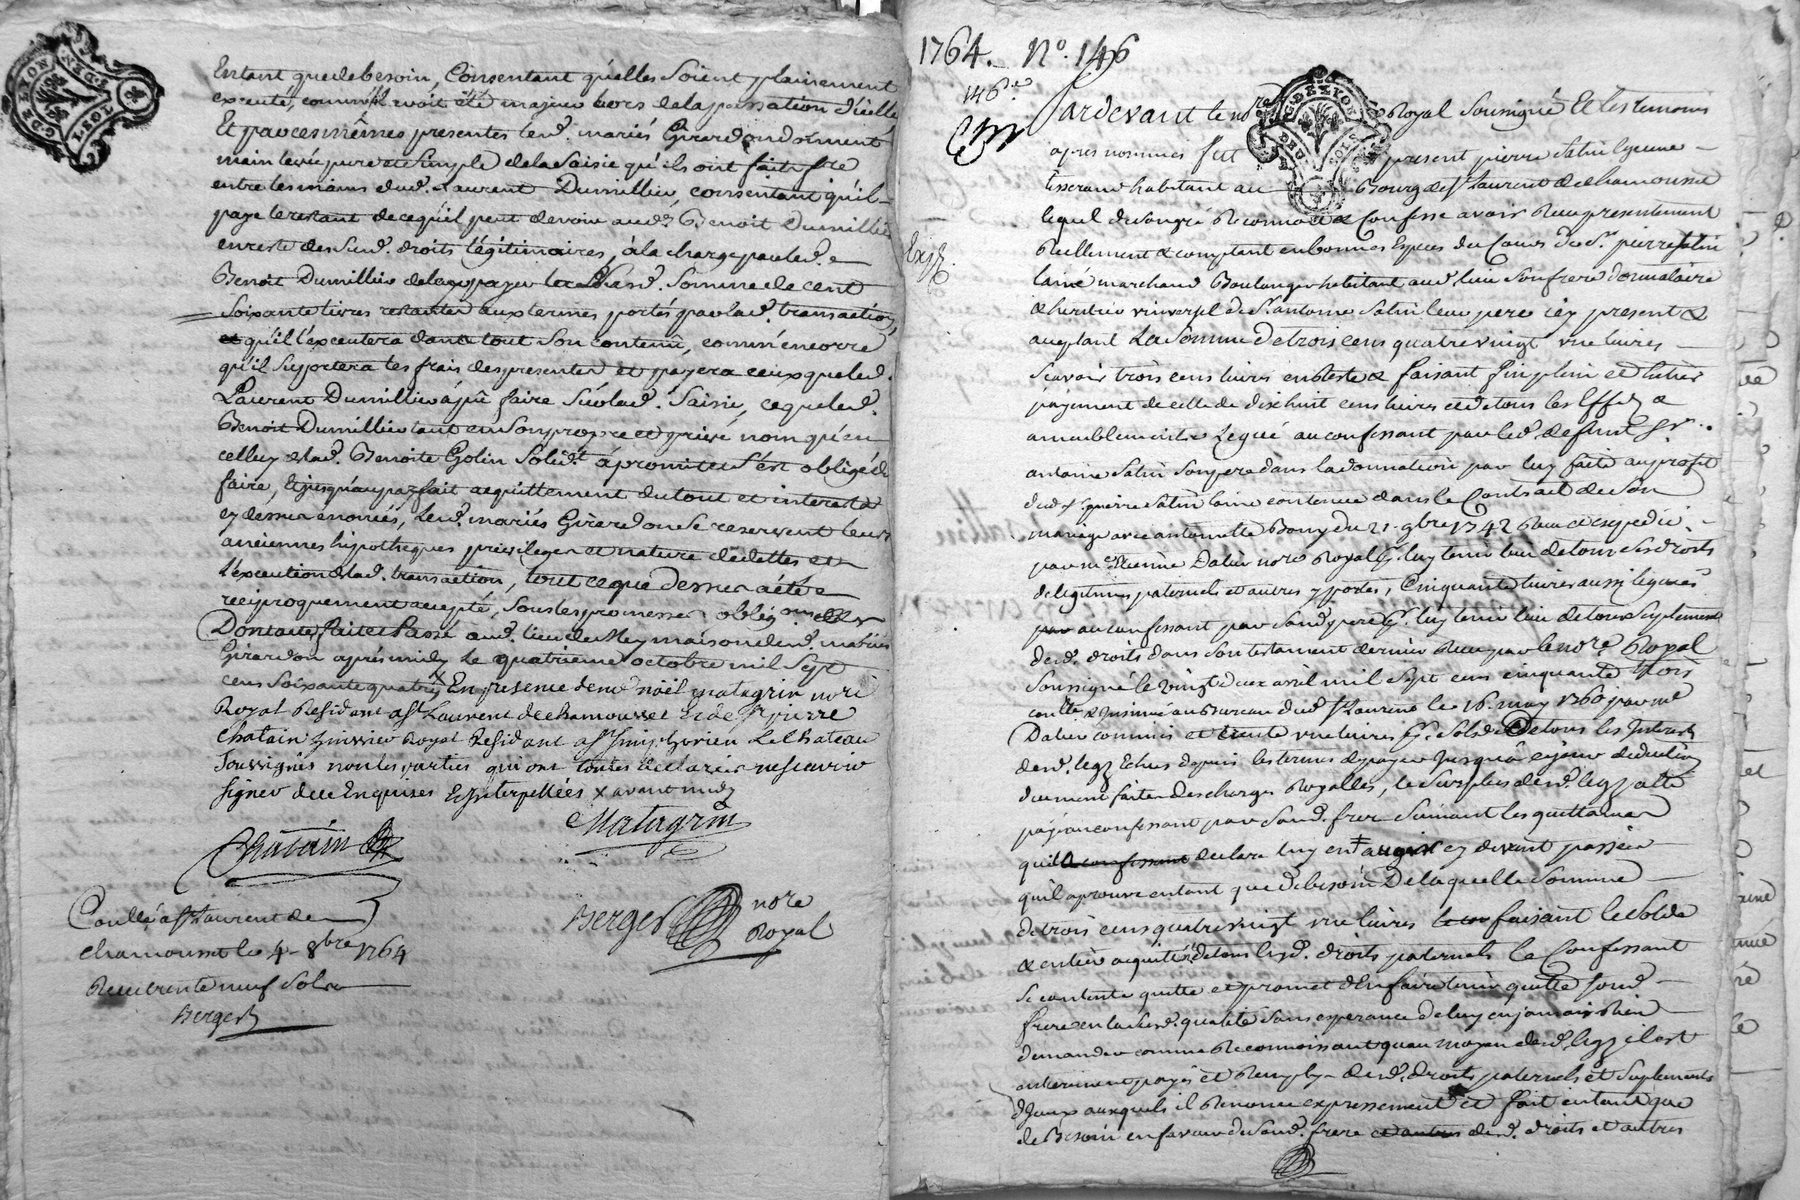 Entant que de besoin, Consentant qu'elles soient plainement
executé, comm'sil avoit été majeur lors de la passation d'icelle
Et par ces mêmes presentes lesd. mariés Girardon donnent
main levée pure et simple de la saisie qu'ils ont fait fre
entre les mains dud. Laurent Dumillieu, consentant qu'il
paye le restant de ce qu'il peut devoir aud. Benoit Dumillieu
en reste de sesd. droits légitimaires, à la charge par led.
Benoit Dumillieu de leur payer lad. somme de cent
soixante livres restantes aux termes portés par lad. transaction,
et qu'il l'executera dans tout son contenu, comm'encorre
qu'il suportera les frais des presentes et payera ceux que led.
Laurent Dumillieu à pû faire sur lad. saisie, ce que led.
Benoit Dumillieu tant en son propre et privé nom qu'en
celluy de lad. Benoite Golin solid.t à promis et s'est obligé de
faire, Et jusqu'au parfait acquittement du tout et interets
cy dessus énoncés, lesd. mariés Girardon se reservent leurs
anciennes hipotheques privileges et nature de dettes et
l'execution de lad. transaction, tout ce que dessus a été
reciproquement accepté, sous les promesses oblig.ons
Dont acte fait et Passé aud. lieu de maison desd. mariés
Girardon après midy Le quatrieme octobre mil sept
cens soixante quatre x En presence de me noël matagrin nore
Royal Residant a st Laurent de chamousset Et de sr pierre
Chatain huissier Royal Residant a st simphorien Le Chateau
soussignés non les parties qui ont toutes déclaré ne scavoir
signer de ce Enquises Et Interpellées x avant midy
Chatain Matagrin
Berger nore Royal
Conllé a st Laurent de
chamousset le 4 8bre 1764
Reçu trente neuf sols
Berger
1764. No. 146
146e
Pardevant le nore Royal soussigné Et les temoins
apres nommés fut present pierre satin le jeune
tisserand habitant au Bourg de st Laurent de chamousset
lequel de son gré Reconnoit & Confesse avoir Reçu presentement
Reellement & comptant en bonnes Especes du Cours de sr. pierre satin
lainé marchand Boulanger habitant aud. lieu son frere donnataire
& heritier universel de sr. antoine satin leur pere icy present &
aceptant La somme de trois cens quatre vingt une livres
scavoir trois cens livres en reste & faisant fin plein et entier
payement de celle de dix huit cens livres et de tous les Effets &
ameublements Legué au confessant par led. defunt sr.
antoine satin son pere dans la donnation par luy faite au profit
dud. sr. pierre satin lainé contenue dans le Contrait de son
mariage avec antoinette Bony du 21 9bre 1742 Reçu et expedié
par me Etienne Dalier nore Royal pr. luy tenir lieu de tous ses droits
de legitimes paternels et autres y portés, Cinquante livres aussi leguées
au confessant par sond. pere pr. luy tenir lieu de tous suplement
desd. droits dans son testament dernier Reçu par le nore Royal
soussigné le vingt deux avril mil sept cens cinquante trois
conllé & insinué au Bureau dud. st Laurent le 16 may 1760 par me
Dalier commis et trente une livres pr. solde de tous les Interets
desd. legs Echus depuis les termes de payer jusqu'à ce jour deduction
duement faite des charges Royalles, le surplus desd. legs a été
payé au confessant par sond. frere suivant les quittances
qu'il declare luy en avoir cy devant passées
qu'il aprouve entant que de besoin De laquelle somme
de trois cens quatre vingt une livres faisant le solde
& entier acquitté de tous lesd. droits paternels le Confessant
se contente quitte et promet d'En faire tenir quitte sond.
frere en lasd. qualité sans esperance de luy en jamais Rien
demander comme Reconnoissant qu'au moyen desd. legs il est
entierement payé et Remply desd. droits paternels et suplements
d'yceux auxquels il Renonce expressement et fait entant que
de Besoin en faveur de sond. frere et autres desd. droits et autres